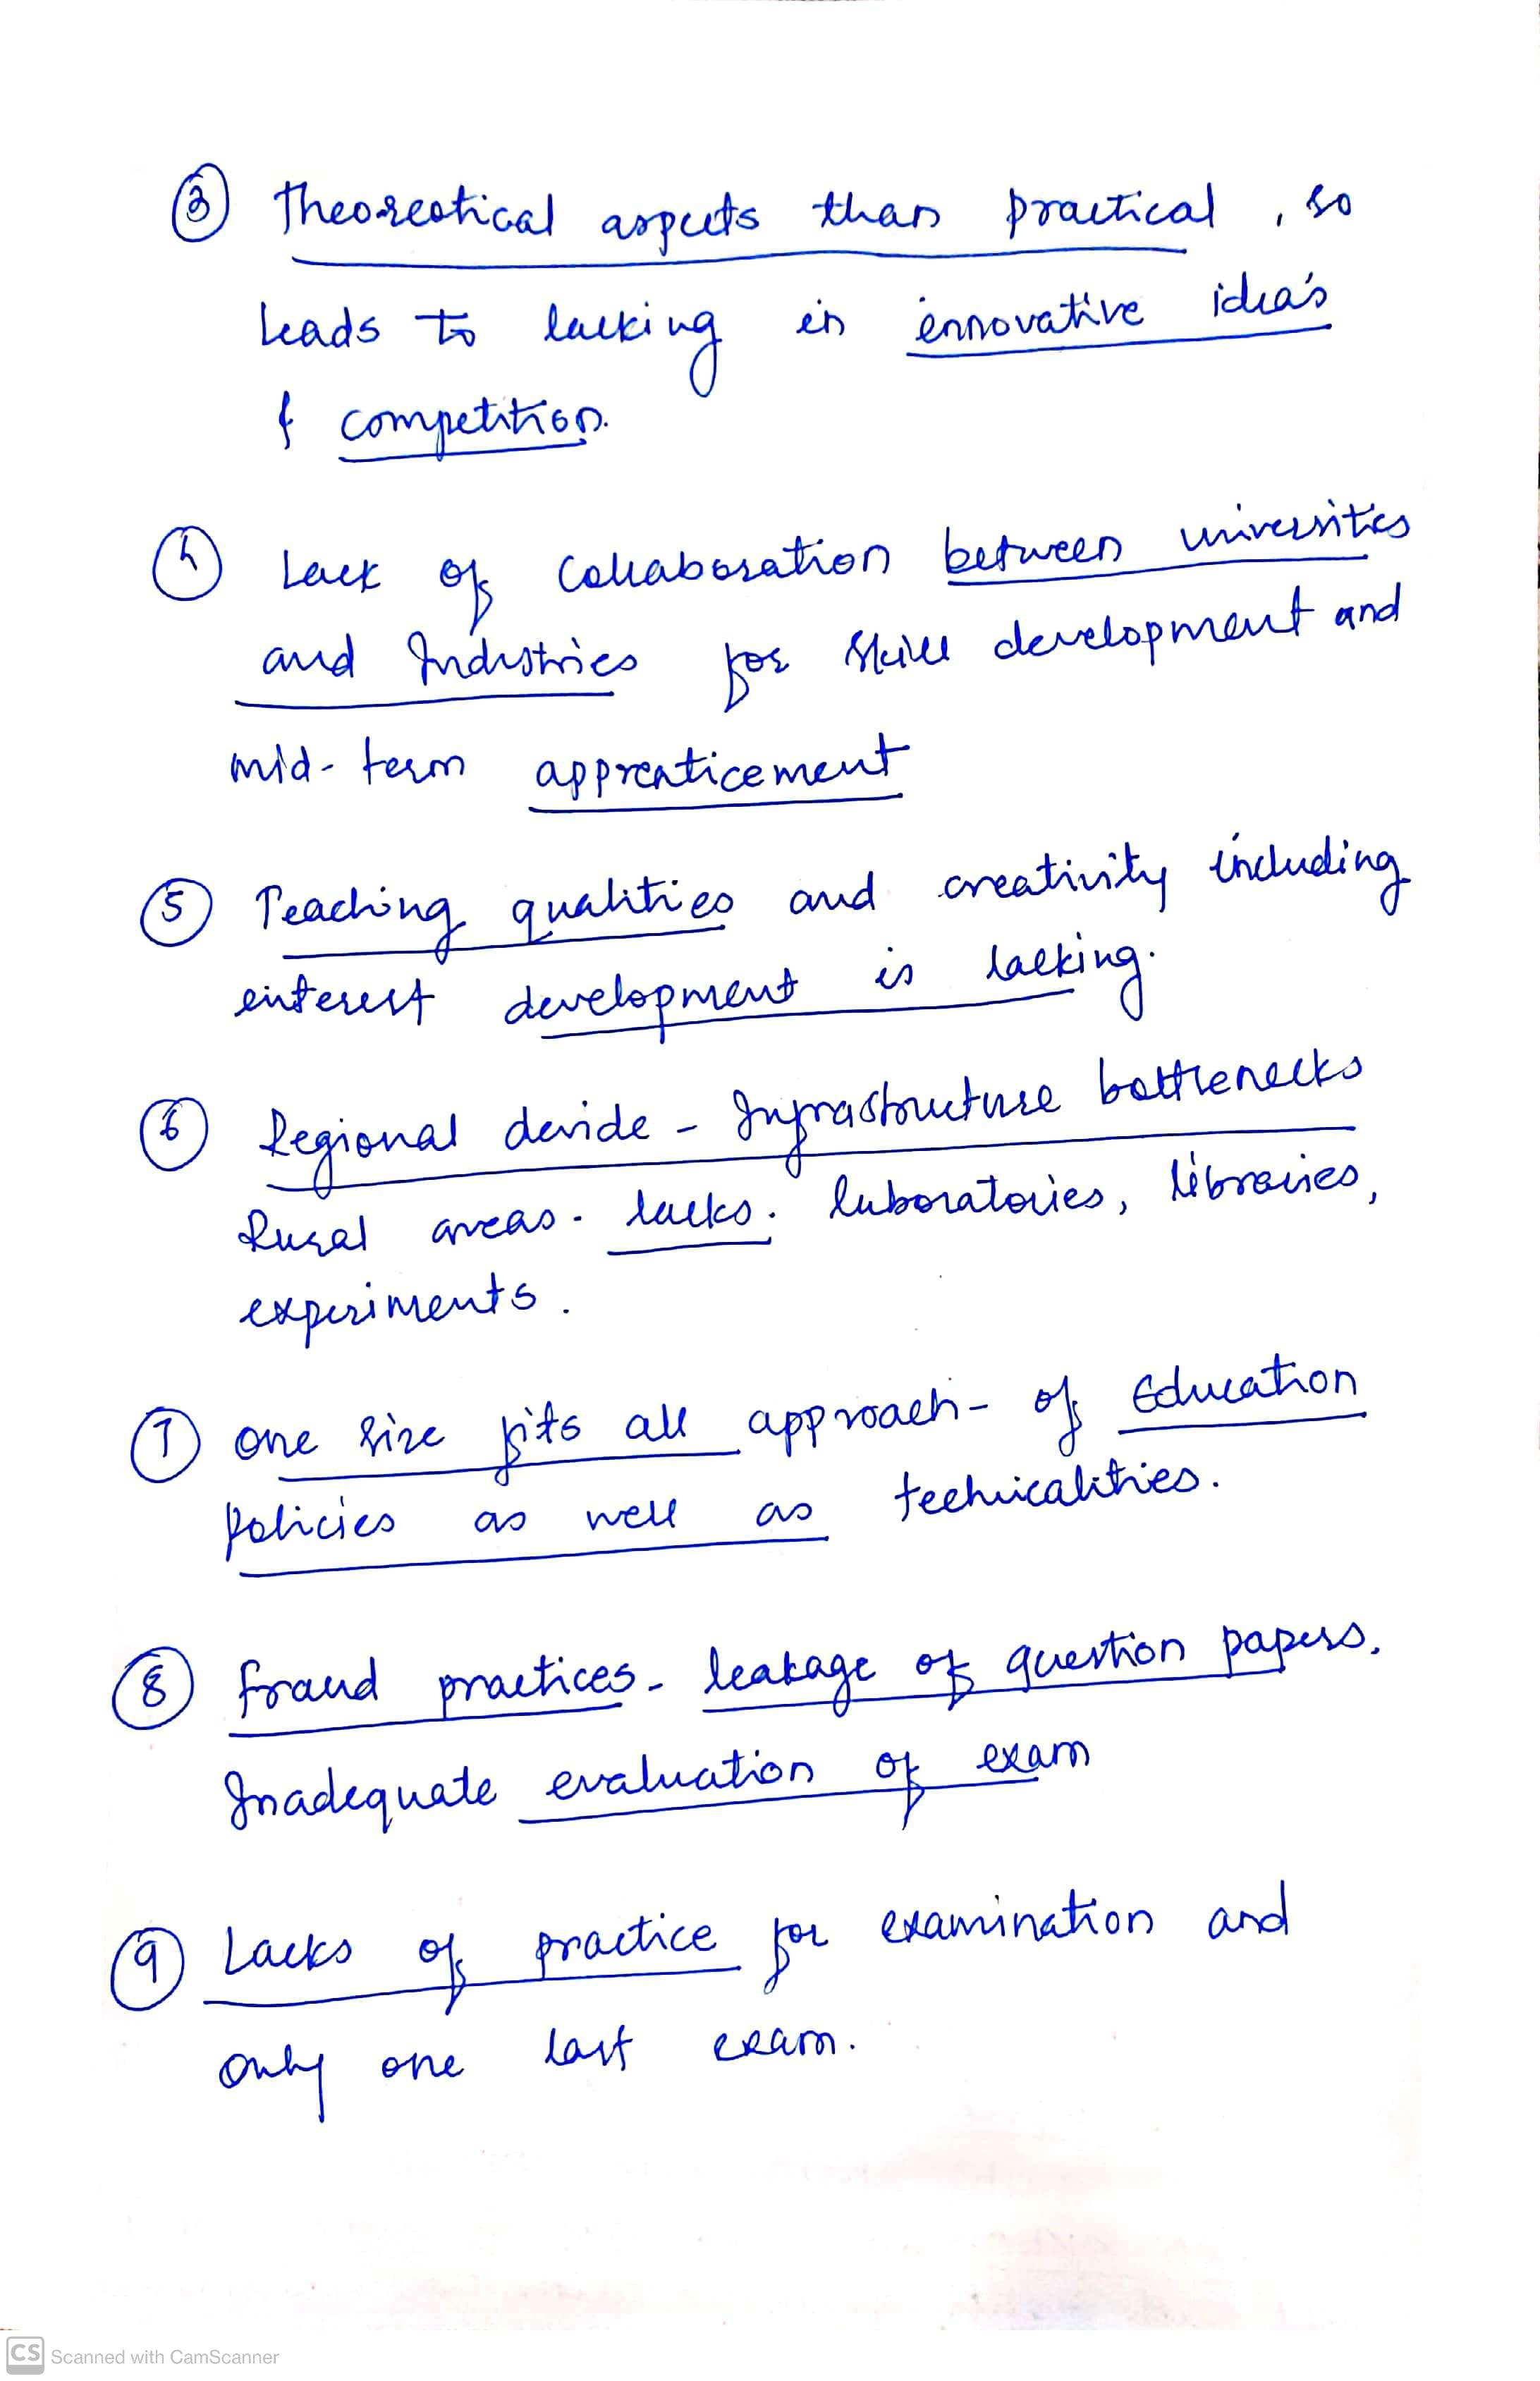 ③ Theoreotical aspects than practical, so
leads to lacking in innovative idea's
& competition.
④ Lack of collaboration between universities
and Industries for skill development and
mid-term apprenticement
⑤ Teaching qualities and creativity including
interest development is lacking.
⑥ Regional devide - Infrastructure bottlenecks
Rural areas. lacks. laboratories, libraries,
experiments.
⑦ one size fits all approach - of Education
policies as well as techicalities.
⑧ fraud practices - leakage of question papers.
Inadequate evaluation of exam
⑨ Lacks of practice for examination and
only one last exam.
CS Scanned with CamScanner